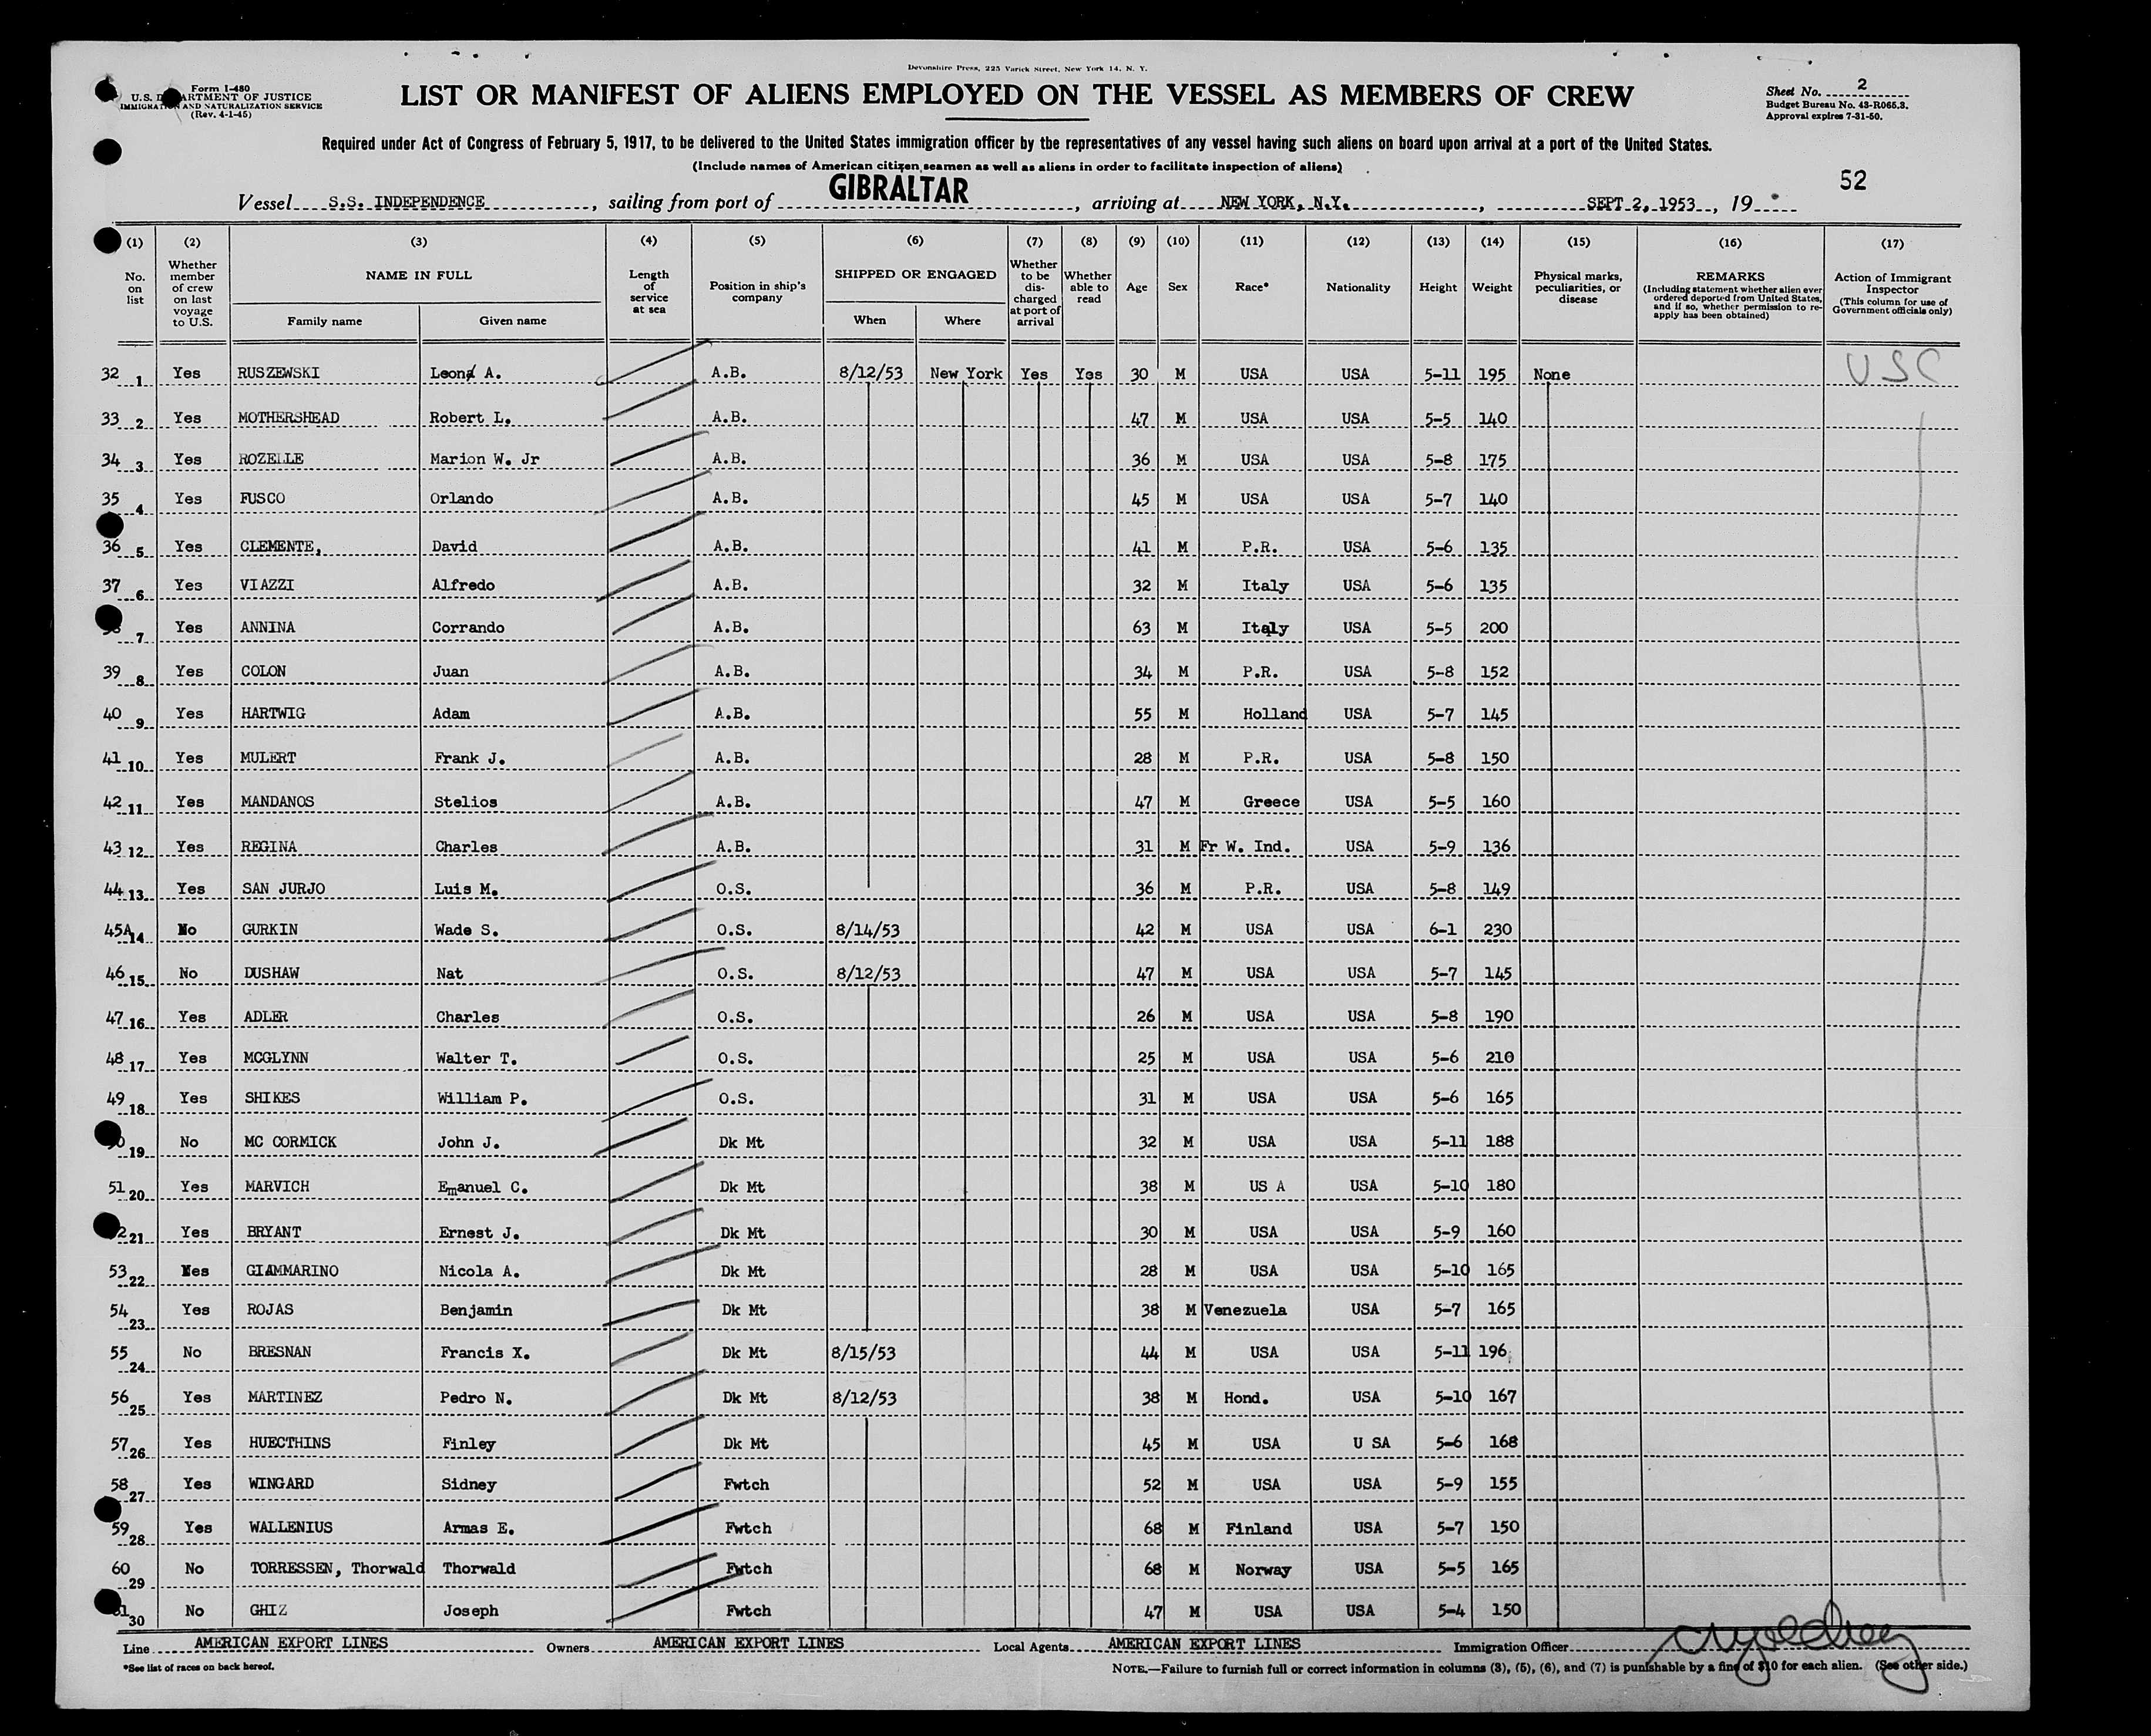 Devonshire Press, 225 Varick Street, New York 14, N. Y.
Form I-480
U.S. DEPARTMENT OF JUSTICE
IMMIGRATION AND NATURALIZATION SERVICE
(Rev. 4-1-45)
LIST OR MANIFEST OF ALIENS EMPLOYED ON THE VESSEL AS MEMBERS OF CREW
Sheet No. 2
Budget Bureau No. 43-R065.3.
Approval expires 7-31-50.
Required under Act of Congress of February 5, 1917, to be delivered to the United States immigration officer by the representatives of any vessel having such aliens on board upon arrival at a port of the United States.
(Include names of American citizen seamen as well as aliens in order to facilitate inspection of aliens)
52
Vessel S.S. INDEPENDENCE, sailing from port of GIBRALTAR, arriving at NEW YORK, N.Y., SEPT 2, 1953, 19
(1) No. on list
(2) Whether member of crew on last voyage to U.S.
(3) NAME IN FULL Family name Given name
(4) Length of service at sea
(5) Position in ship's company
(6) SHIPPED OR ENGAGED When Where
(7) Whether to be discharged at port of arrival
(8) Whether able to read
(9) Age
(10) Sex
(11) Race*
(12) Nationality
(13) Height
(14) Weight
(15) Physical marks, peculiarities, or disease
(16) REMARKS (Including statement whether alien ever ordered deported from United States, and if so, whether permission to reapply has been obtained)
(17) Action of Immigrant Inspector (This column for use of Government officials only)
32 1 Yes RUSZEWSKI Leon A. A.B. 8/12/53 New York Yes Yes 30 M USA USA 5-11 195 None USC
33 2 Yes MOTHERSHEAD Robert L. A.B. 47 M USA USA 5-5 140
34 3 Yes ROZELLE Marion W. Jr A.B. 36 M USA USA 5-8 175
35 4 Yes FUSCO Orlando A.B. 45 M USA USA 5-7 140
36 5 Yes CLEMENTE, David A.B. 41 M P.R. USA 5-6 135
37 6 Yes VIAZZI Alfredo A.B. 32 M Italy USA 5-6 135
7 Yes ANNINA Corrando A.B. 63 M Italy USA 5-5 200
39 8 Yes COLON Juan A.B. 34 M P.R. USA 5-8 152
40 9 Yes HARTWIG Adam A.B. 55 M Holland USA 5-7 145
41 10 Yes MULERT Frank J. A.B. 28 M P.R. USA 5-8 150
42 11 Yes MANDANOS Stelios A.B. 47 M Greece USA 5-5 160
43 12 Yes REGINA Charles A.B. 31 M Fr W. Ind. USA 5-9 136
44 13 Yes SAN JURJO Luis M. O.S. 36 M P.R. USA 5-8 149
45A 14 No GURKIN Wade S. O.S. 8/14/53 42 M USA USA 6-1 230
46 15 No DUSHAW Nat O.S. 8/12/53 47 M USA USA 5-7 145
47 16 Yes ADLER Charles O.S. 26 M USA USA 5-8 190
48 17 Yes MCGLYNN Walter T. O.S. 25 M USA USA 5-6 210
49 18 Yes SHIKES William P. O.S. 31 M USA USA 5-6 165
19 No MC CORMICK John J. Dk Mt 32 M USA USA 5-11 188
51 20 Yes MARVICH Emanuel C. Dk Mt 38 M US A USA 5-10 180
2 21 Yes BRYANT Ernest J. Dk Mt 30 M USA USA 5-9 160
53 22 Yes GIAMMARINO Nicola A. Dk Mt 28 M USA USA 5-10 165
54 23 Yes ROJAS Benjamin Dk Mt 38 M Venezuela USA 5-7 165
55 24 No BRESNAN Francis X. Dk Mt 8/15/53 44 M USA USA 5-11 196
56 25 Yes MARTINEZ Pedro N. Dk Mt 8/12/53 38 M Hond. USA 5-10 167
57 26 Yes HUECTHINS Finley Dk Mt 45 M USA U SA 5-6 168
58 27 Yes WINGARD Sidney Fwtch 52 M USA USA 5-9 155
59 28 Yes WALLENIUS Armas E. Fwtch 68 M Finland USA 5-7 150
60 29 No TORRESSEN, Thorwald Thorwald Fwtch 68 M Norway USA 5-5 165
30 No GHIZ Joseph Fwtch 47 M USA USA 5-4 150
Line AMERICAN EXPORT LINES Owners AMERICAN EXPORT LINES Local Agents AMERICAN EXPORT LINES Immigration Officer
*See list of races on back hereof.
NOTE.—Failure to furnish full or correct information in columns (3), (5), (6), and (7) is punishable by a fine of $10 for each alien. (See other side.)